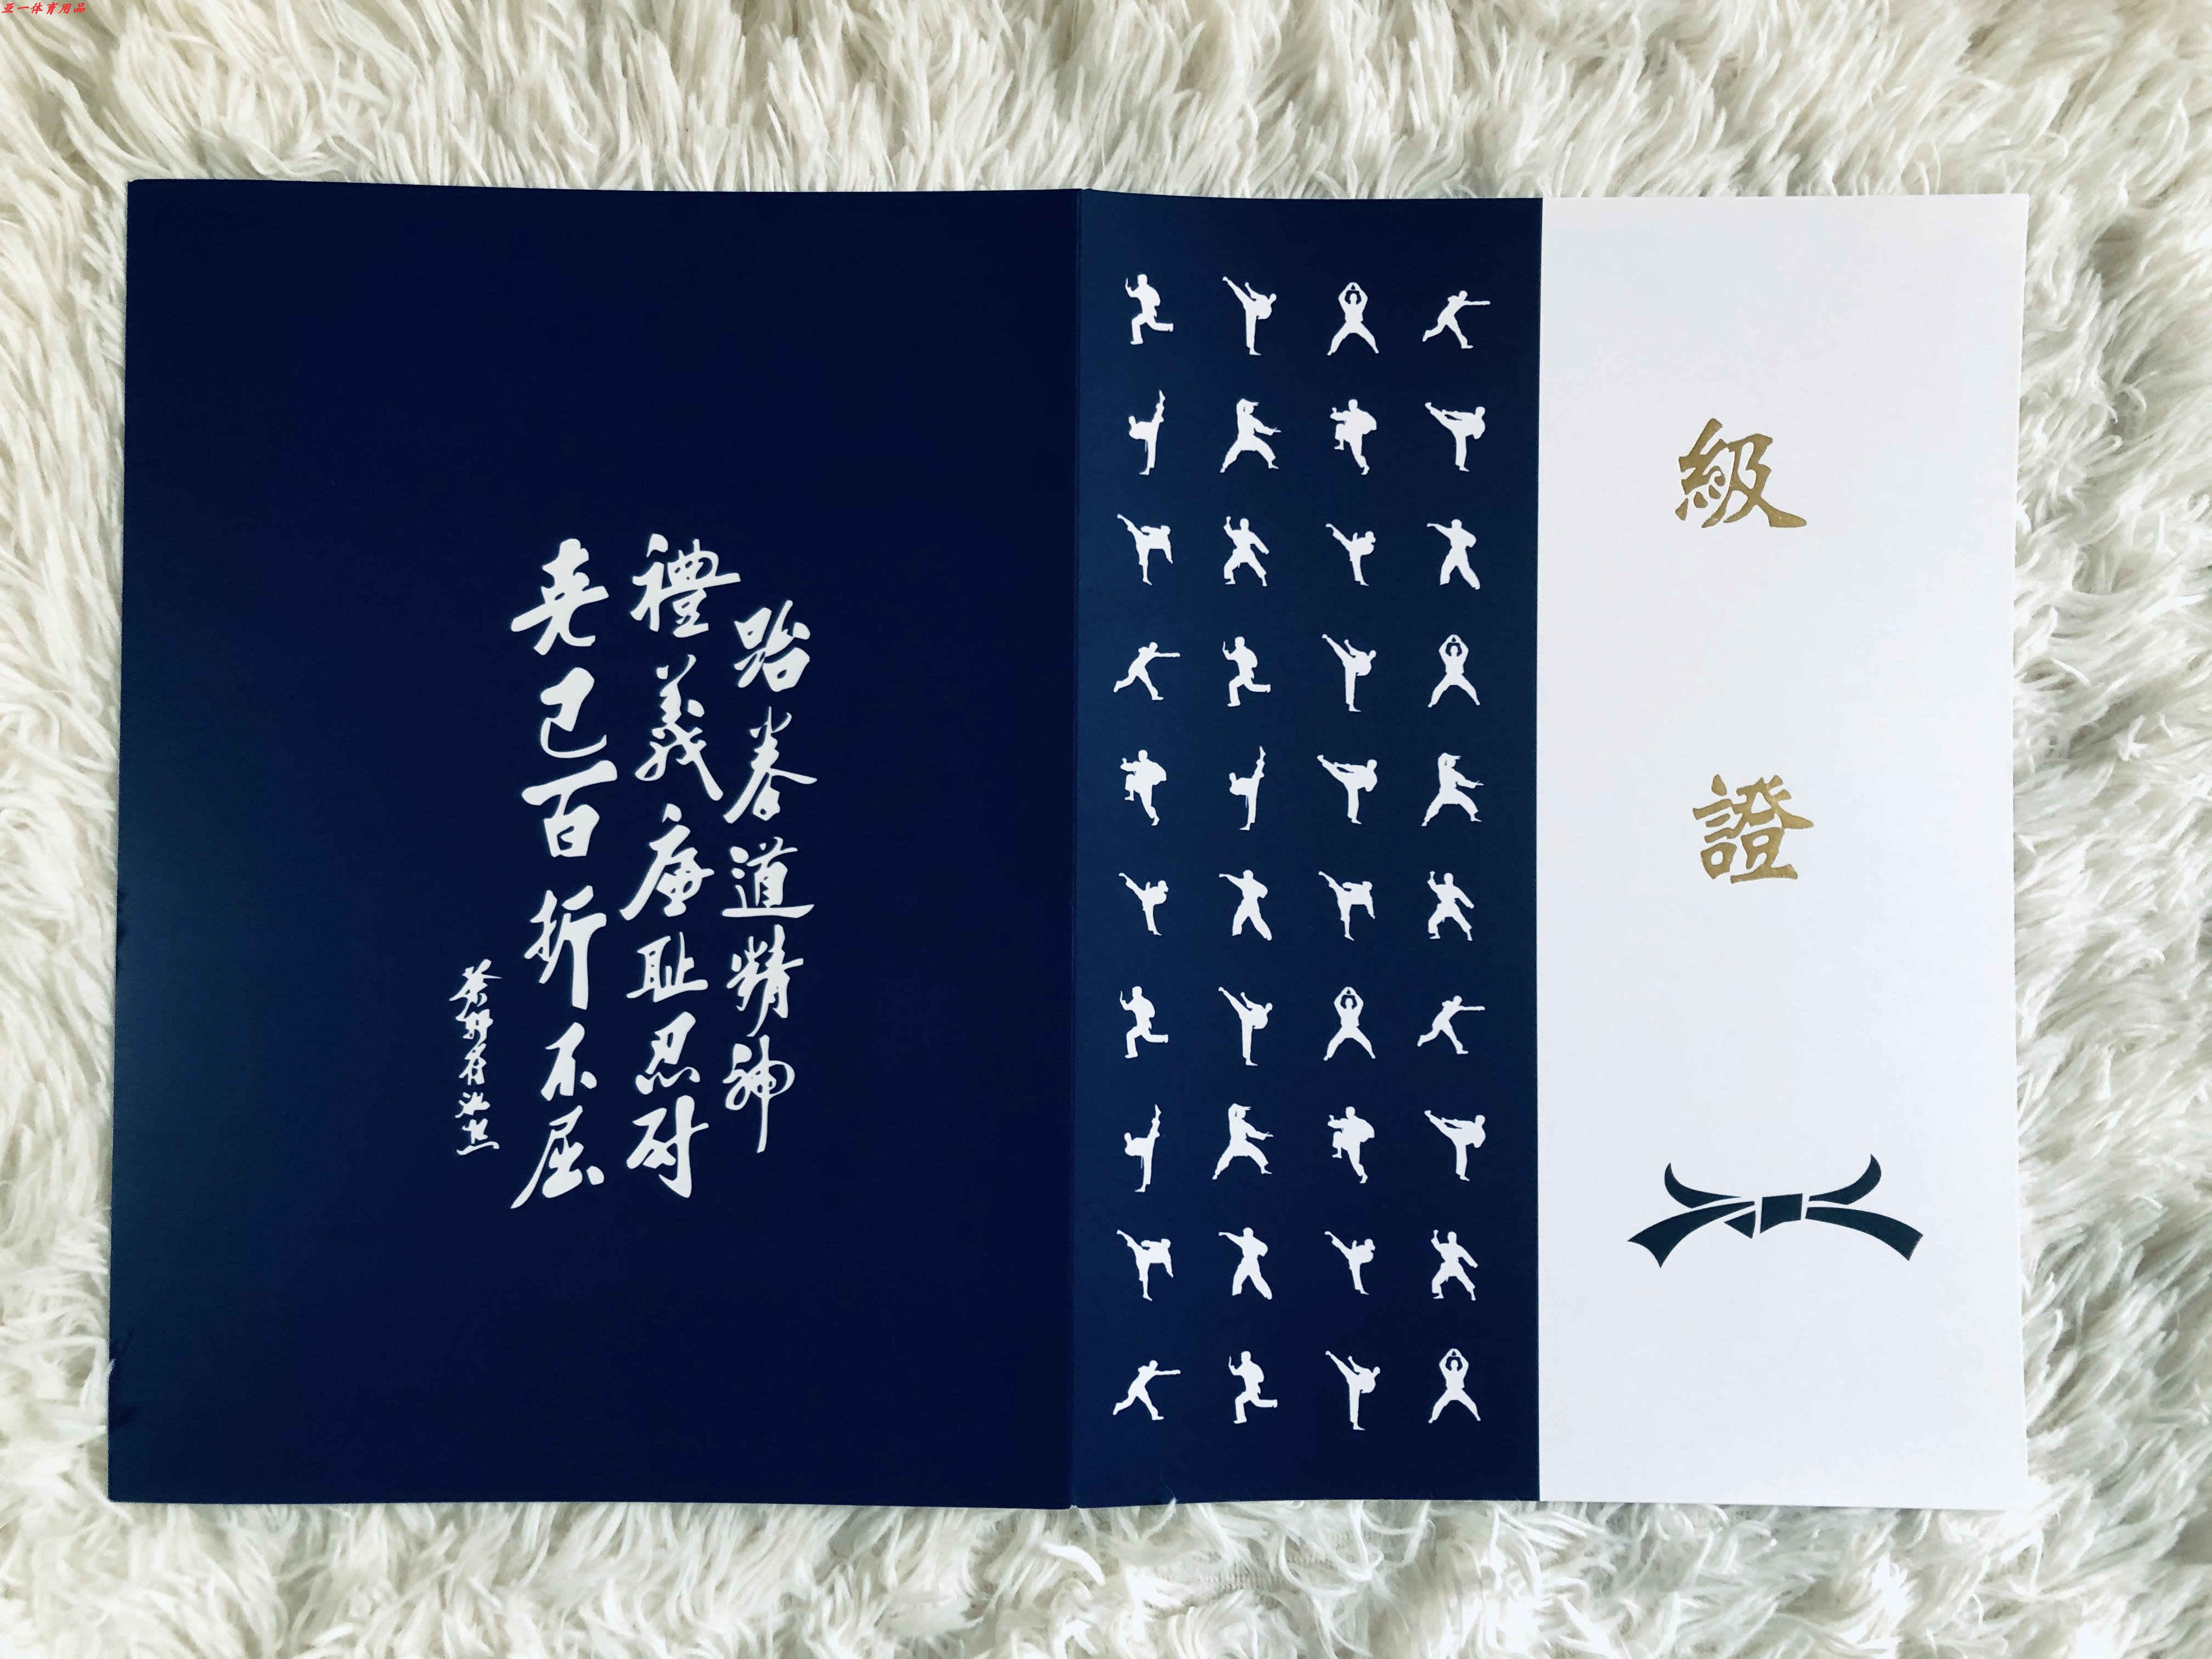 亚一体育用品
跆拳道精神
禮義廉耻忍耐
克己百折不屈
級證